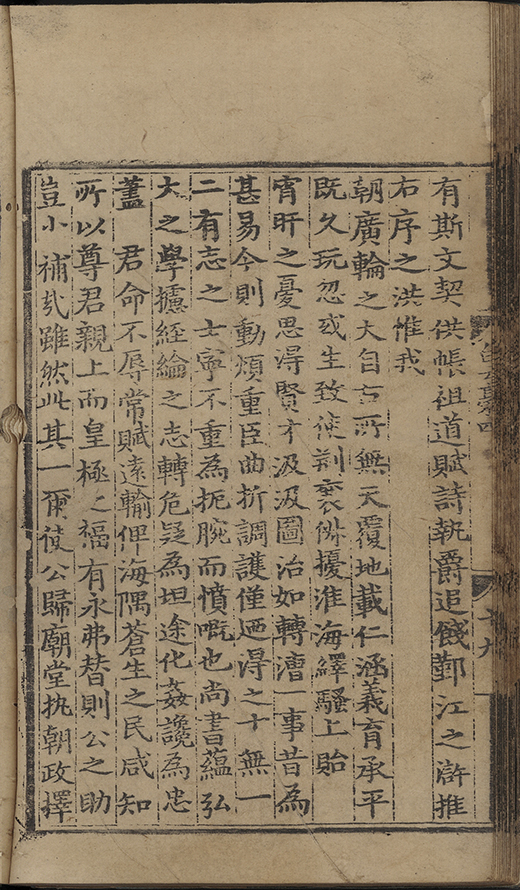 有斯文契供帳祖道賦詩執爵追餞鄞江之滸推
右序之洪惟我
朝廣輪之大自古所無天覆地載仁涵義育承平
既久玩忽或生致使荆襄俶擾淮海繹騷上貽
宵旰之憂思得賢才汲汲圖治如轉漕一事昔為
甚易今則動煩重臣曲折調護僅迺得之十無一
二有志之士寧不重為扼腕而憤嘅也尚書蘊弘
大之學攄經綸之志轉危疑為坦途化姦讒為忠
藎 君命不辱常賦遠輸俾海隅蒼生之民咸知
所以尊君親上而皇極之福有永弗替則公之助
豈小補㢤雖然此其一爾使公歸廟堂执朝政擇
十九